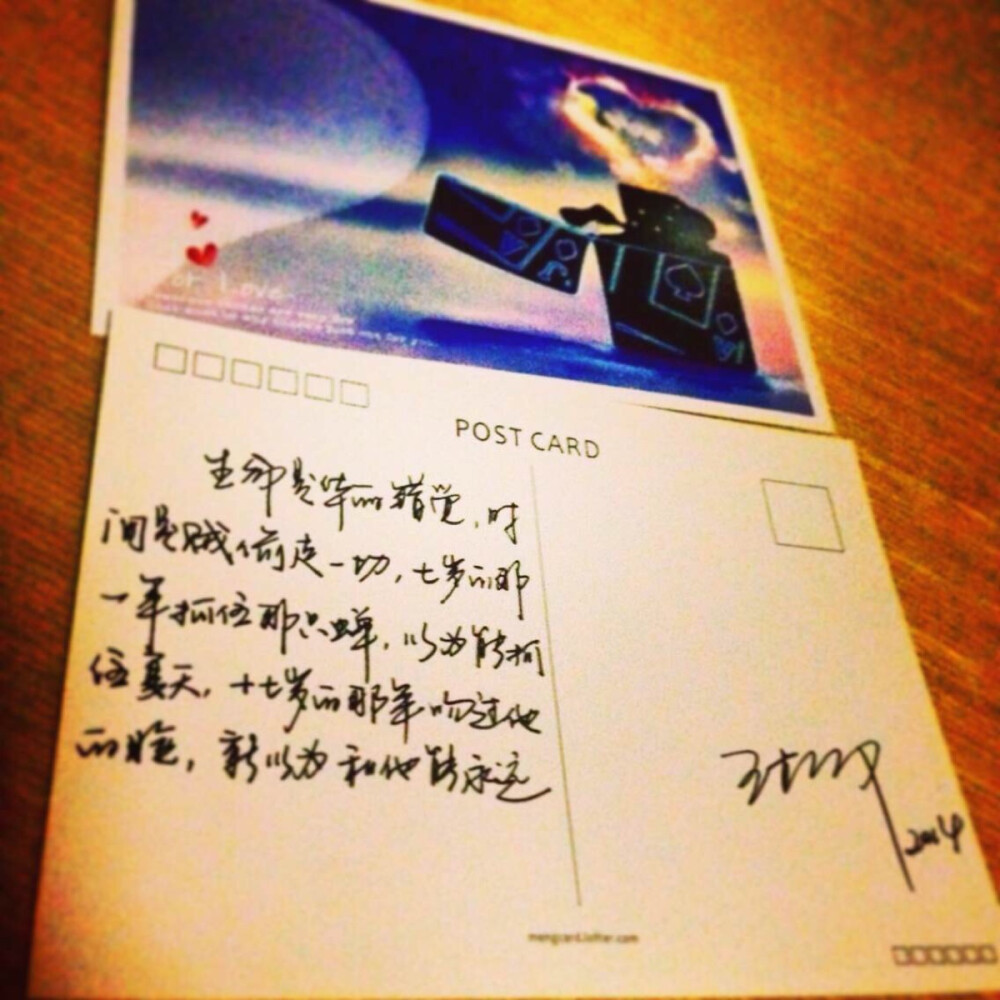 Love
POST CARD
生命是华丽错觉，时
间是贼偷走一切，七岁的那
一年抓住那只蝉，以为能抓
住夏天，十七岁的那年吻过他
的脸，就以为和他能永远
2014